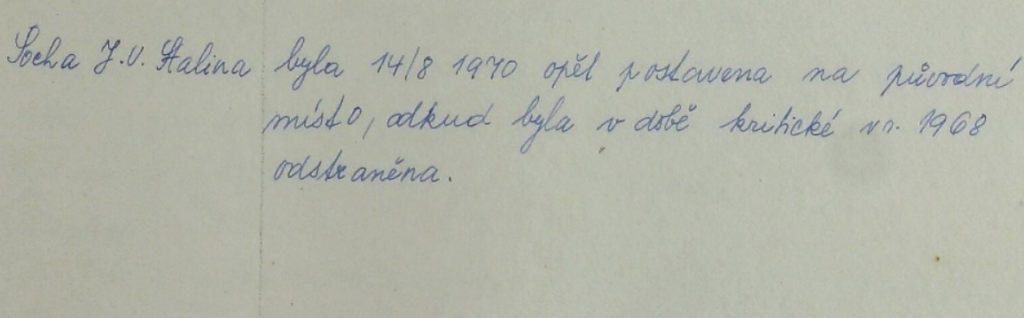 Socha J.V. Stalina byla 14/8 1970 opět postavena na původní
místo, odkud byla v době kritické v r. 1968
odstraněna.